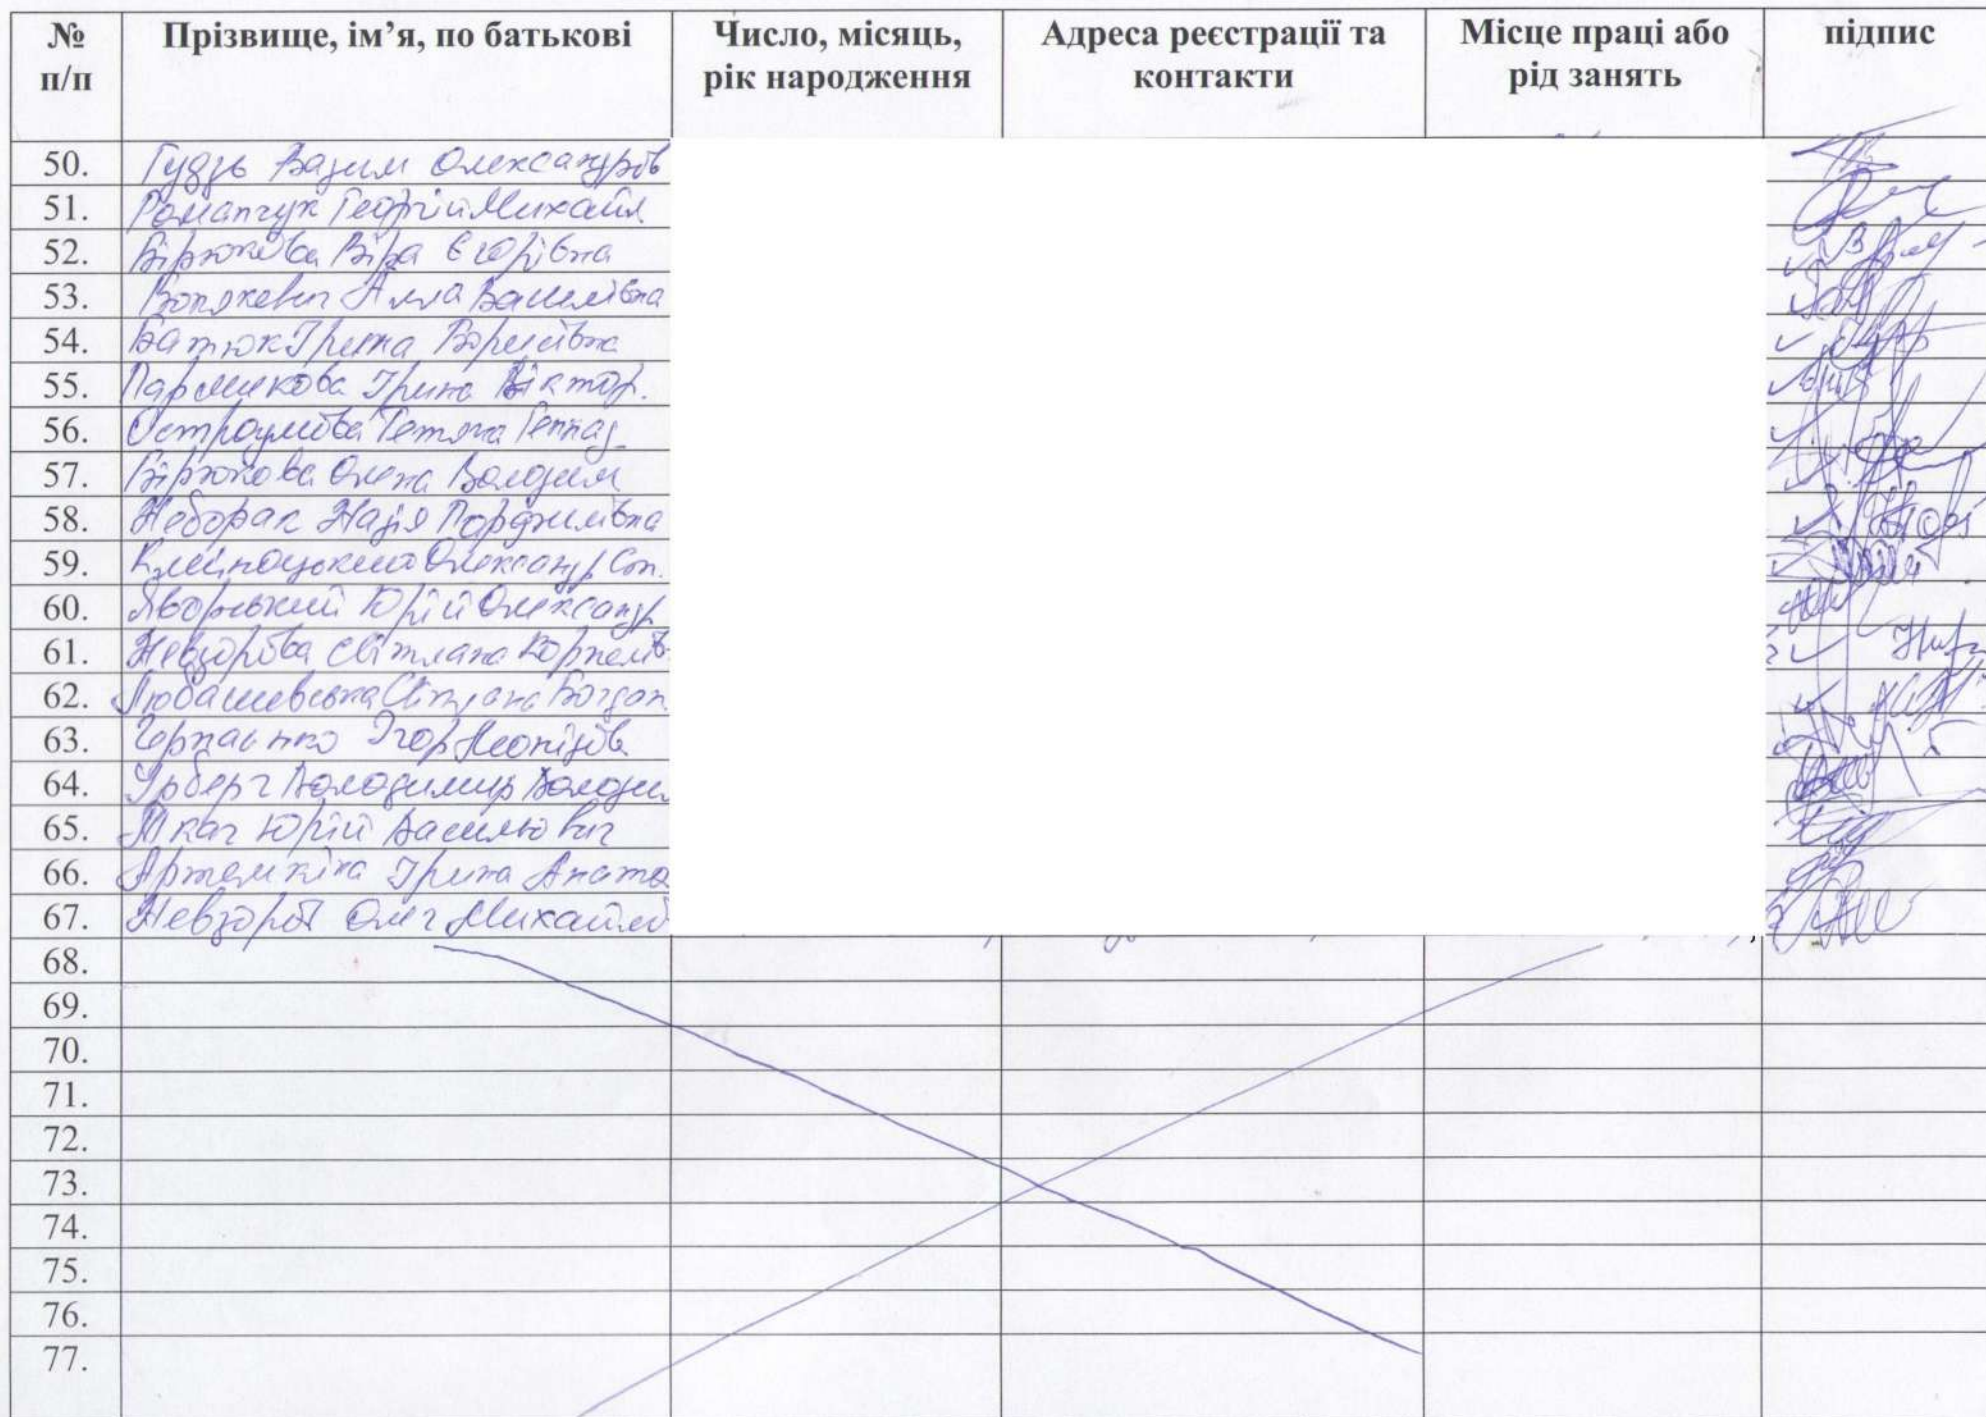 № п/п Прізвище, ім’я, по батькові Число, місяць, рік народження Адреса реєстрації та контакти Місце праці або рід занять підпис
50. Гудзь Вадим Олександрів
51. Романчук Георгій Михайл
52. Бірюкова Віра Єгорівна
53. Алла Василівна
54. Батюк Ірина
55. Ірина Віктор.
56. Остроумова Тетяна Геннад
57. Бірюкова Олена Володим
58. Неборак Надія
59. Олександр
60. Яворський Юрій Олександр
61. Невзорова Світлана
62. Любашевська Світлана Богдан
63. Ігор Леонідів
64. Урберг Володимир Володи
65. Ткач Юрій Васильович
66. Артемкіна Ірина Анато
67. Невзоров Олег Михайлов
68.
69.
70.
71.
72.
73.
74.
75.
76.
77.